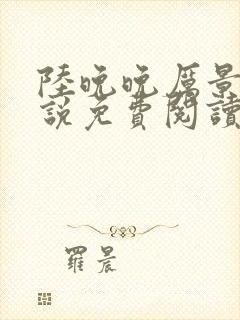 陸晚晚厲景
說免費閱讀
羅晨